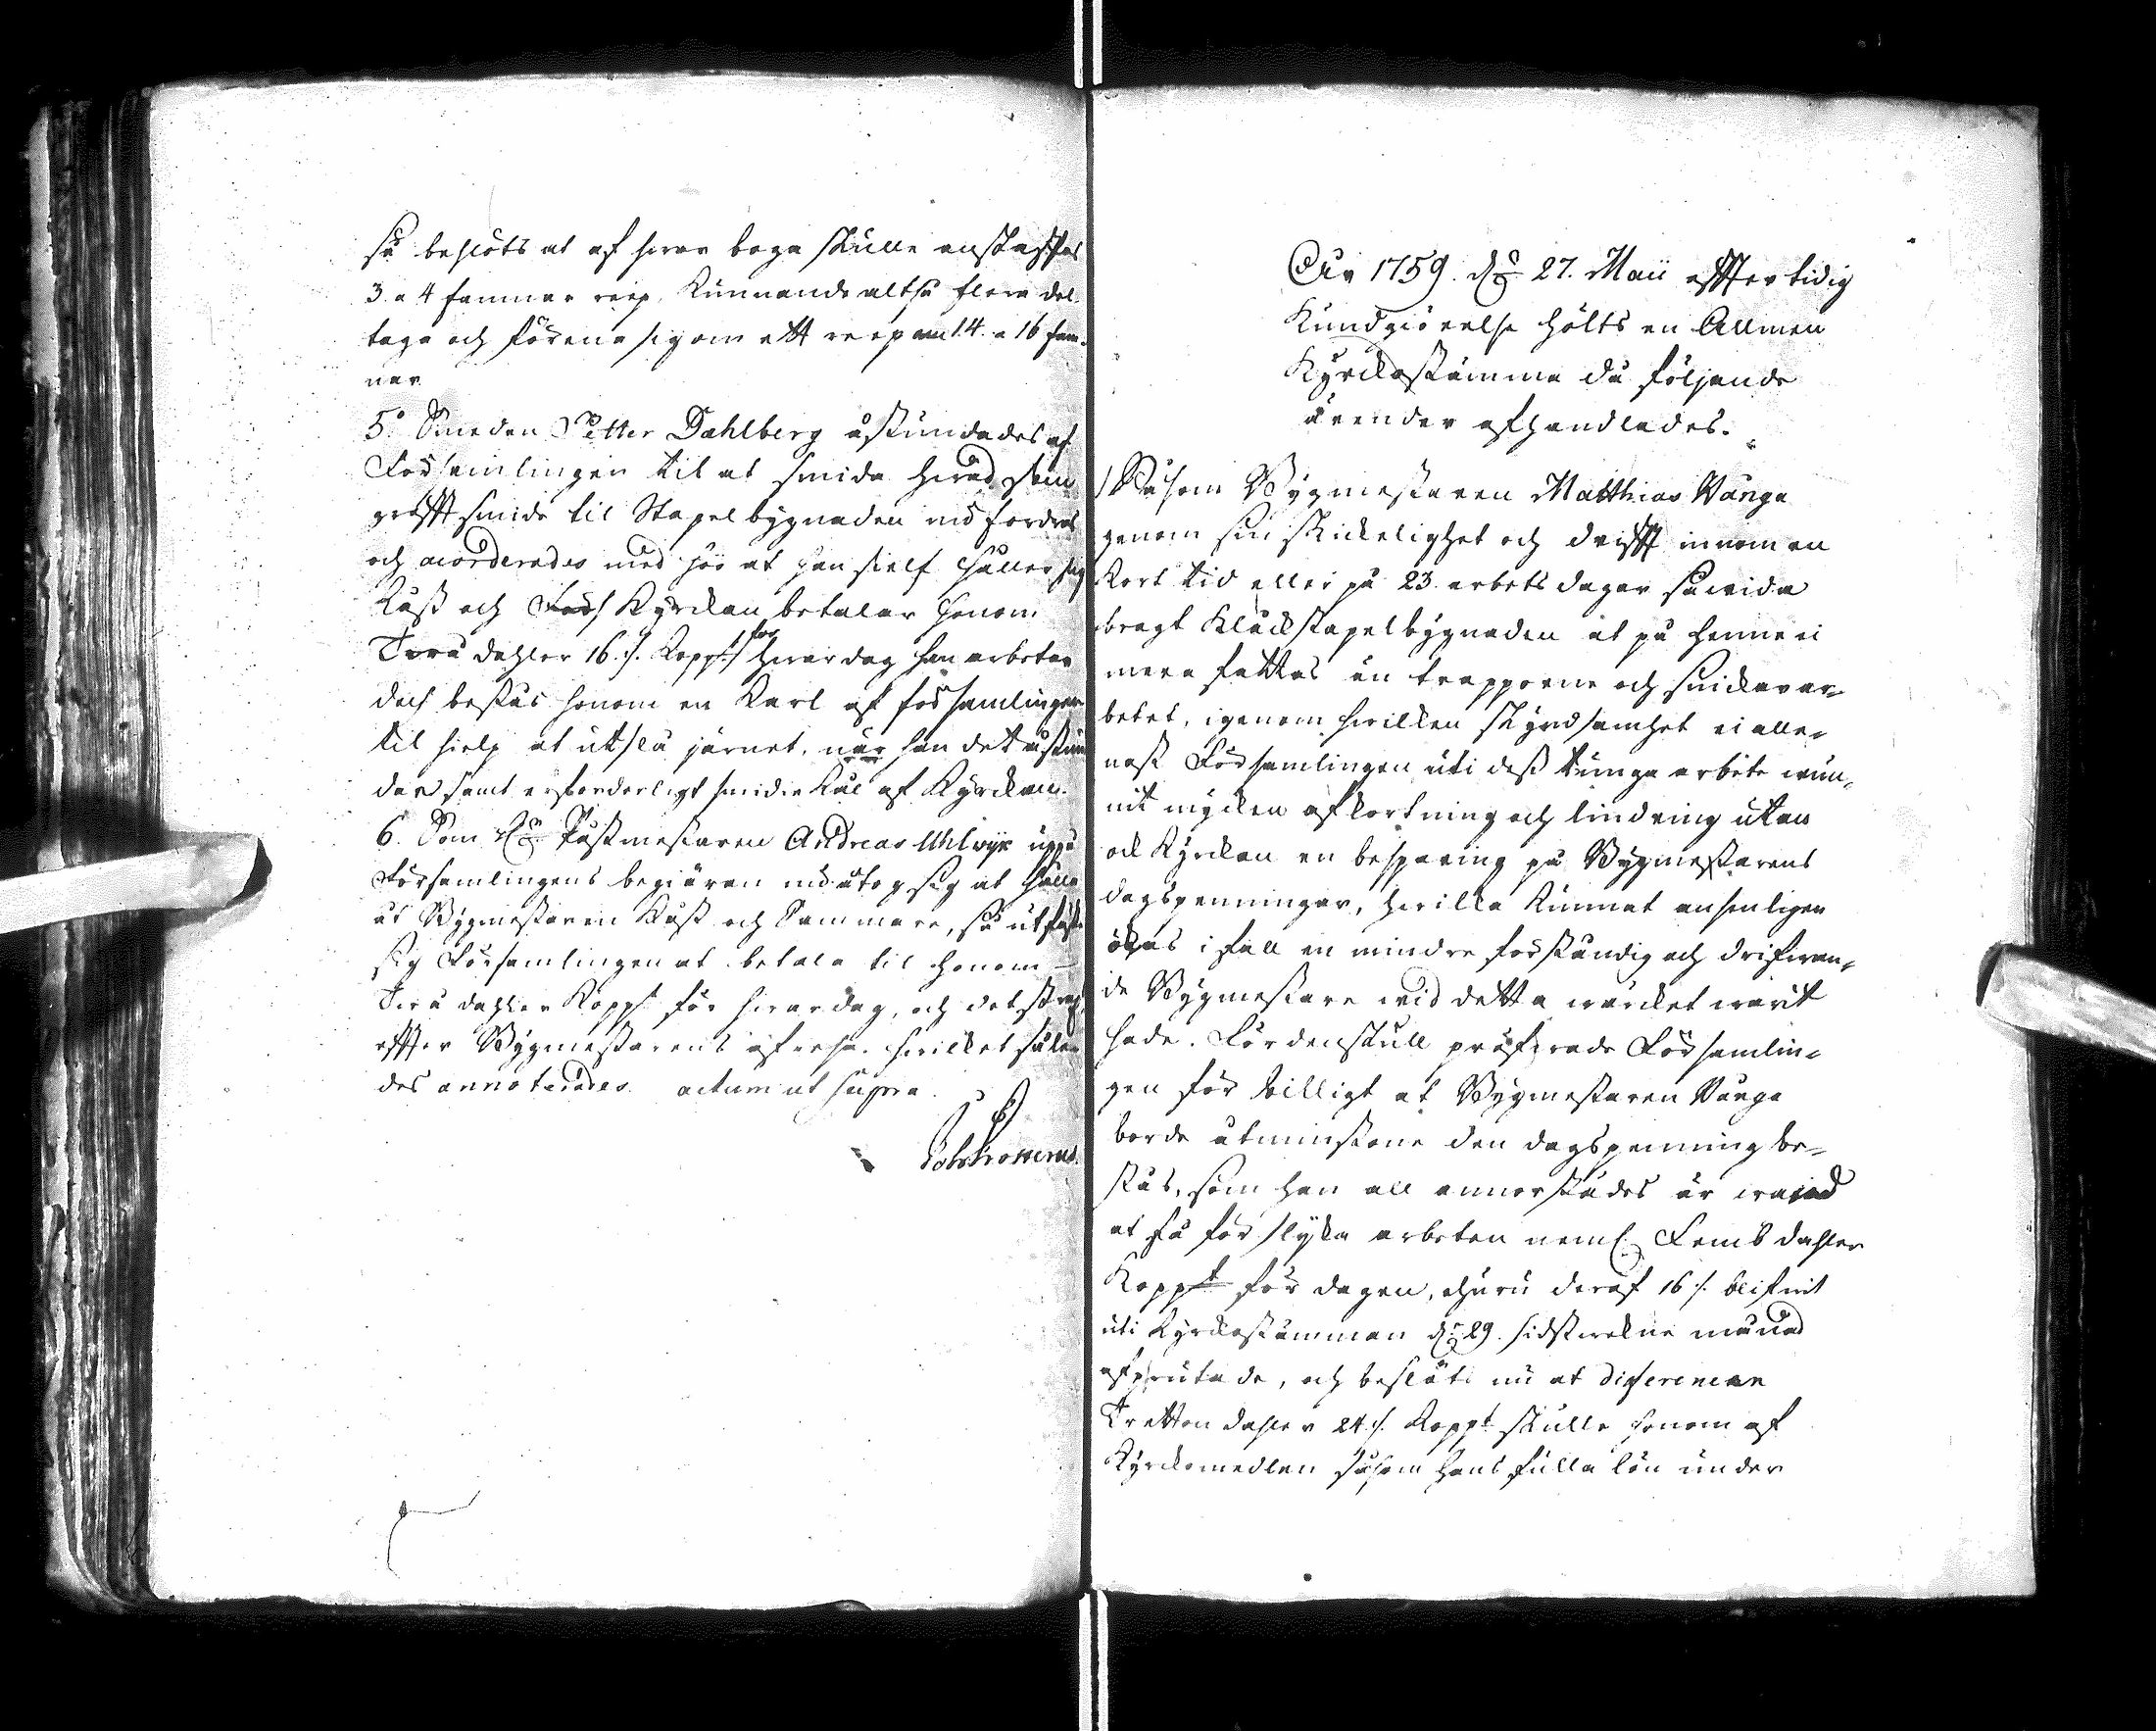 så beslöts at af hwar boga skulle anskaffas
3 a 4 famnar reep, kunnande altså flera del-
taga och förena sig om ett reep om 14. a 16 fam-
nar
5.o Smeden Petter Dahlberg åstundades af
Församlingen til at smida hwad som
grofft smide til Stapelbygnaden erfordras
och accorderades med hån at han sielf håller sig
Kost och Kyrckan betalar honom
Twå dahler 16 :/. Koppt för hwar dag han arbetar
doch bestås honom en Karl af församlingen
til hielp at utslå järnet, när han det åstun-
dar samt erforderligt smidie Kål af Kyrckan.
6. Som Hr Postmestaren Andreas Uhlwyk uppå
Församlingens begiäran nu åtog sig at hålla
åt Bygmestaren Kost och Cammare, så utfäste
sig Församlingen at betala til honom
Twå dahler Koppt för hwar dag, och det strax
effter Bygmestarens afresa. hwilcket således
des annoterades. actum ut supra.
Joh: Krosserus.
Åhr 1759. den 27. Maii effter tidig
Kundgiörelse hölts en Allmen
Kyrckostämma då följande
ärender afhandlades.
1 Såsom Bygmestaren Matthias Wänga
genom sin skickelighet och drifft innom en
kort tid eller på 23 arbets dagar så wida
bragt Klåckstapelbygnaden at på henne ei
mera fattas än trapporne och snickarar-
betet, igenom hwilken skyndsamhet ei alle-
nast Församlingen uti dess tunga arbete wun-
nit mycken afkortning och lindring utan
ock Kyrckan en besparing på Bygmestarens
dagspenningar, hwilka kunnat ansenligen
ökas i fall en mindre förståndig och drifwan-
de Bygmestare wid detta wärcket warit
hade. Fördenskull pröfwade Församlin-
gen för billigt at Bygmestaren Wänga
borde åtminstone den dagspenning be-
stås, som han all annorstädes är wand
at få för slyka arbeten neml. Femb dahler
Koppt för dagen, churu deraf 16 :/. blifwit
uti Kyrckostämman den 29. sidstwekne månad
afprutade, och beslöts nu at differencen
Tretton dahler 24 :/. Koppt skulle honom af
Kyrckomedlen såsom hans fulla lön under